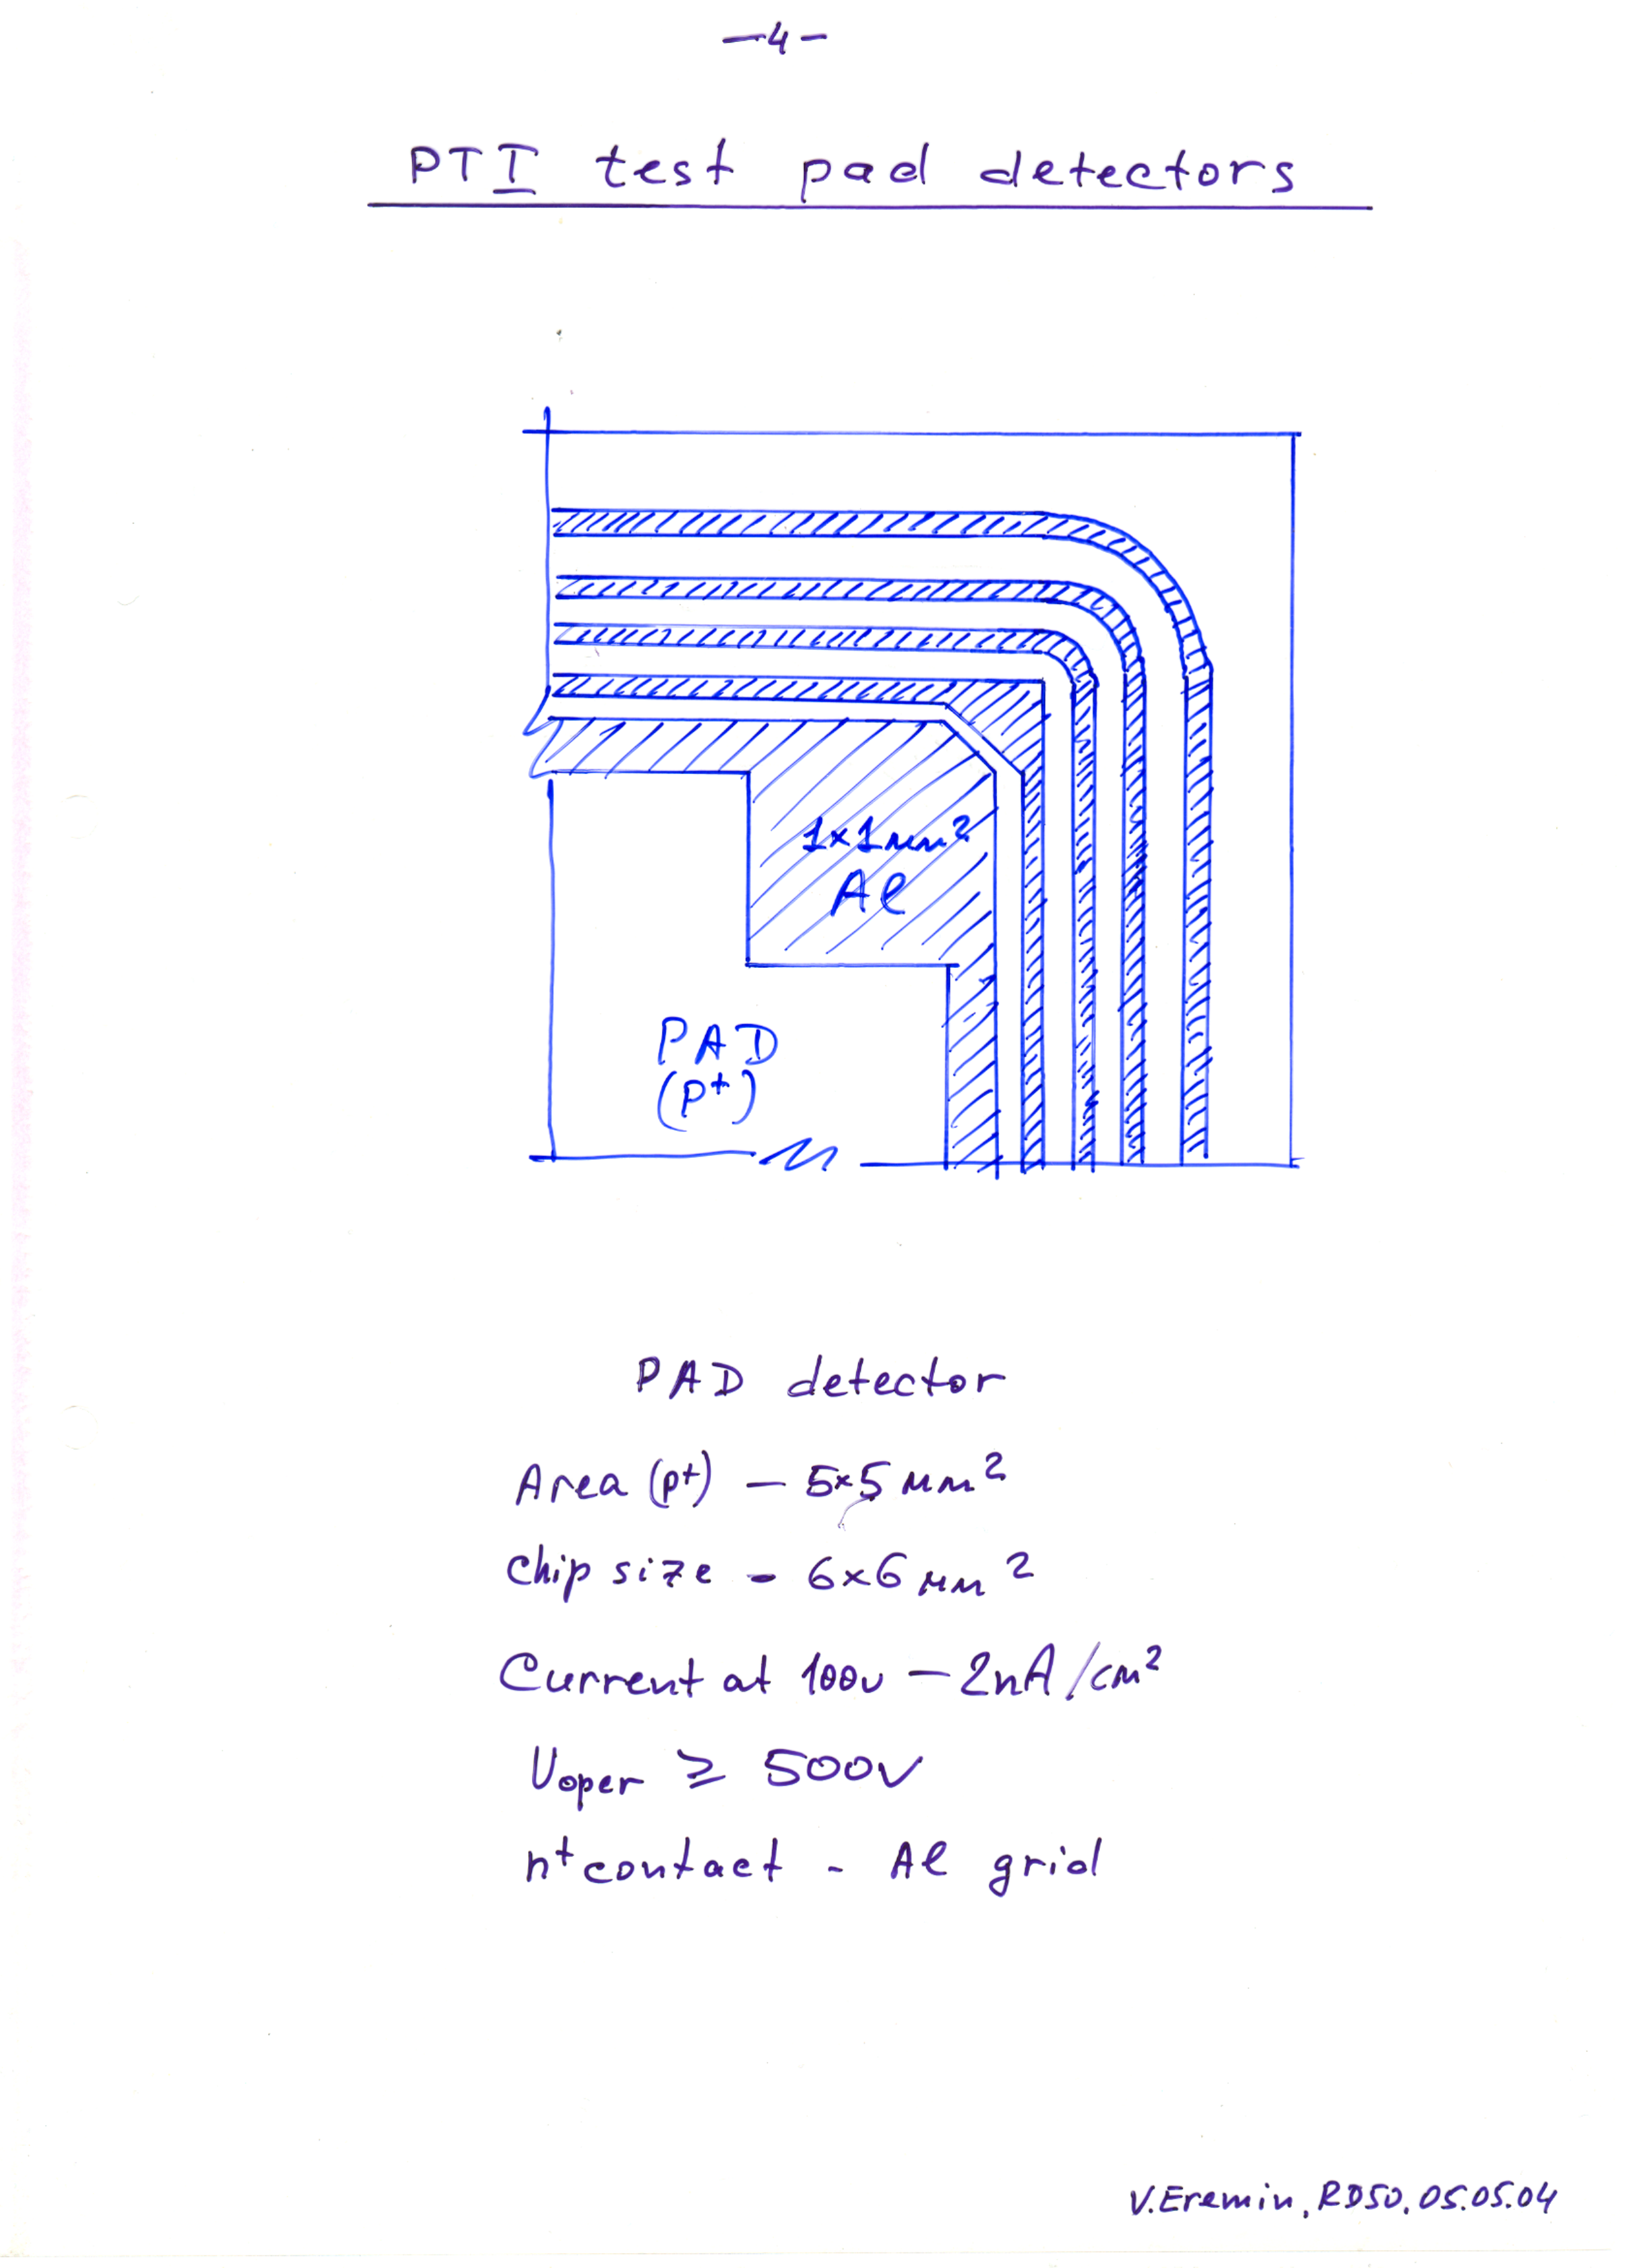 -4-
PTI test pad detectors
1x1мм²
Al
PAD
(p+)
PAD detector
Area (p+) - 5x5 мм²
Chip size - 6x6 мм²
Current at 100v - 2nA/cm²
Uoper ≥ 500v
n+ contact - Al grid
V.Eremin, RD50, 05.05.04